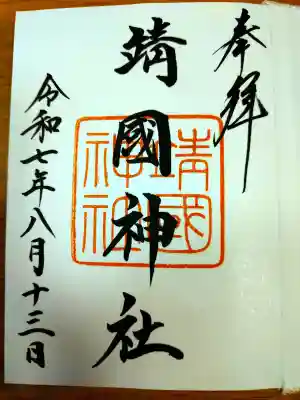 奉拝
靖國神社
靖國
神社
令和七年八月十三日